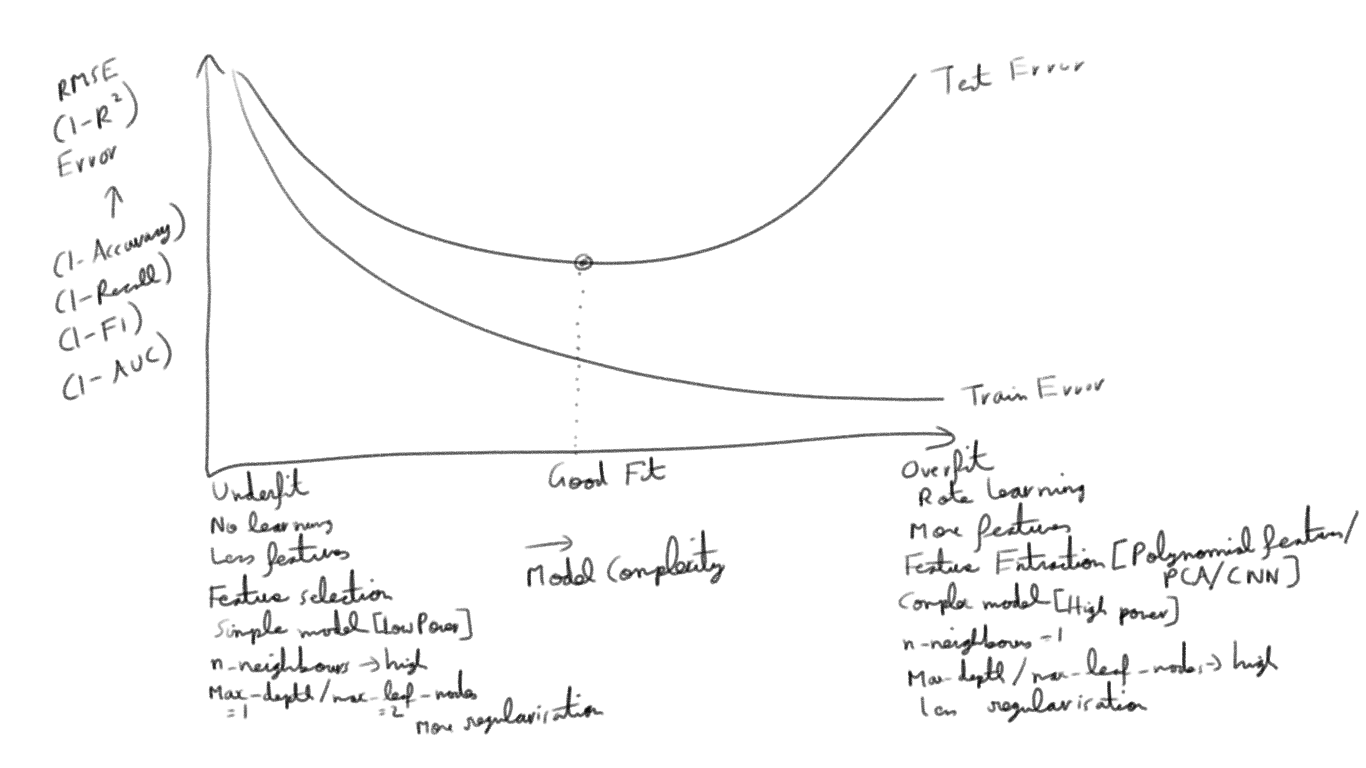 RMSE
(1-R²)
Error
↑
(1-Accuracy)
(1-Recall)
(1-F1)
(1-AUC)
Test Error
Train Error
Underfit
No learning
Less features
Feature selection
Simple model [Low Power]
n-neighbours → high
Max-depth / max-leaf-nodes
=1 =2
More regularisation
Good Fit
→
Model Complexity
Overfit
Rote Learning
More features
Feature Extraction [Polynomial features/
PCA/CNN]
Complex model [High power]
n-neighbours = 1
Max-depth / max-leaf-nodes → high
Less regularisation